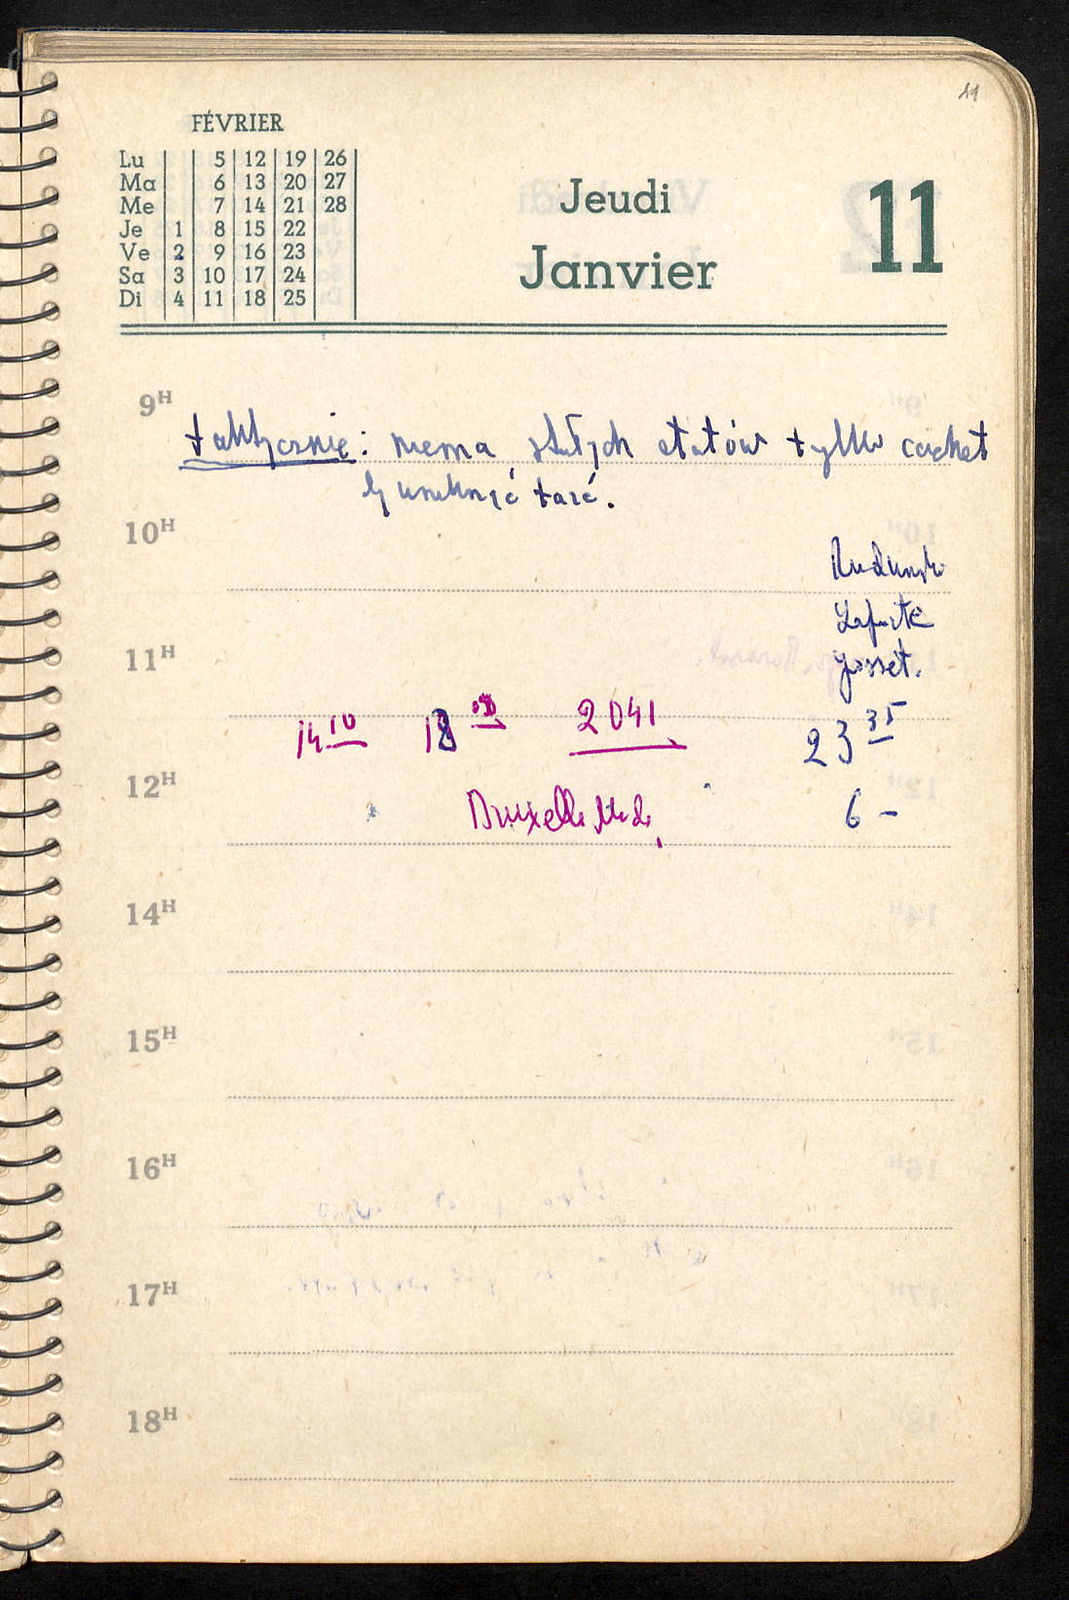 11
FÉVRIER
Lu 5 12 19 26
Ma 6 13 20 27
Me 7 14 21 28
Je 1 8 15 22
Ve 2 9 16 23
Sa 3 10 17 24
Di 4 11 18 25
Jeudi
Janvier
11
9H
taktycznie: niema stałych etatów tylko cachet
by uniknąć
10H
Lafitte
Gosset.
11H
14 10 18 2041 23 35
12H
Bruxelle 6 -
14H
15H
16H
17H
18H